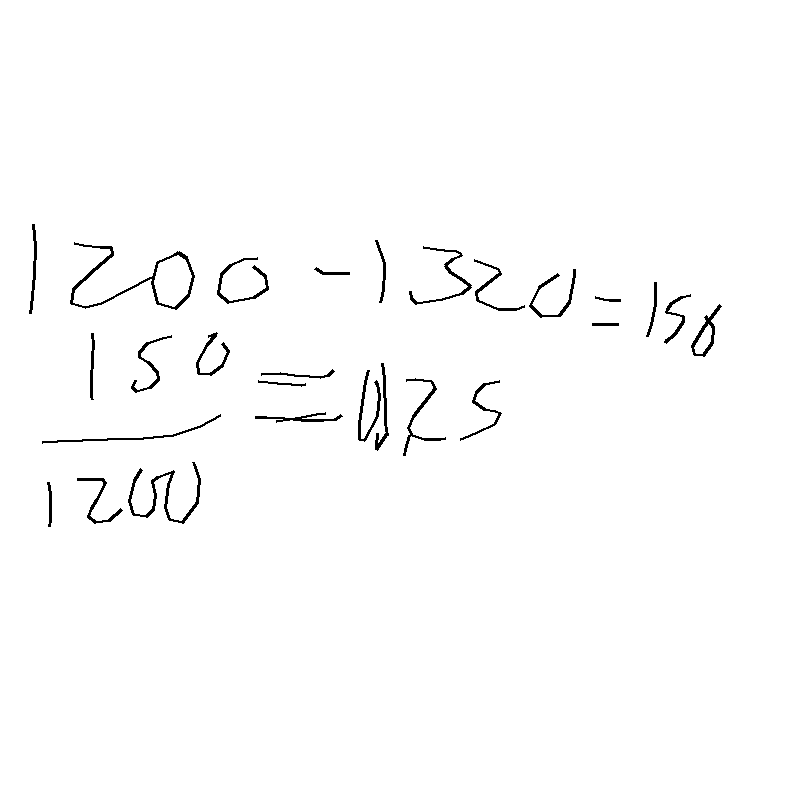 1200 - 1320 = 150
150
1200 = 0,125